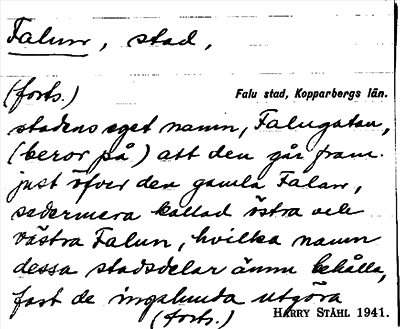 Falun, stad,
(forts.)
Falu stad, Kopparbergs län.
stadens eget namn, Falugatan,
(beror på) att den går fram
just öfver den gamla Falan,
sedermera kallad östra och
västra Falun, hvilka namn
dessa stadsdelar ännu behålla,
fast de ingalunda utgöra
HARRY STÅHL 1941.
(forts.)